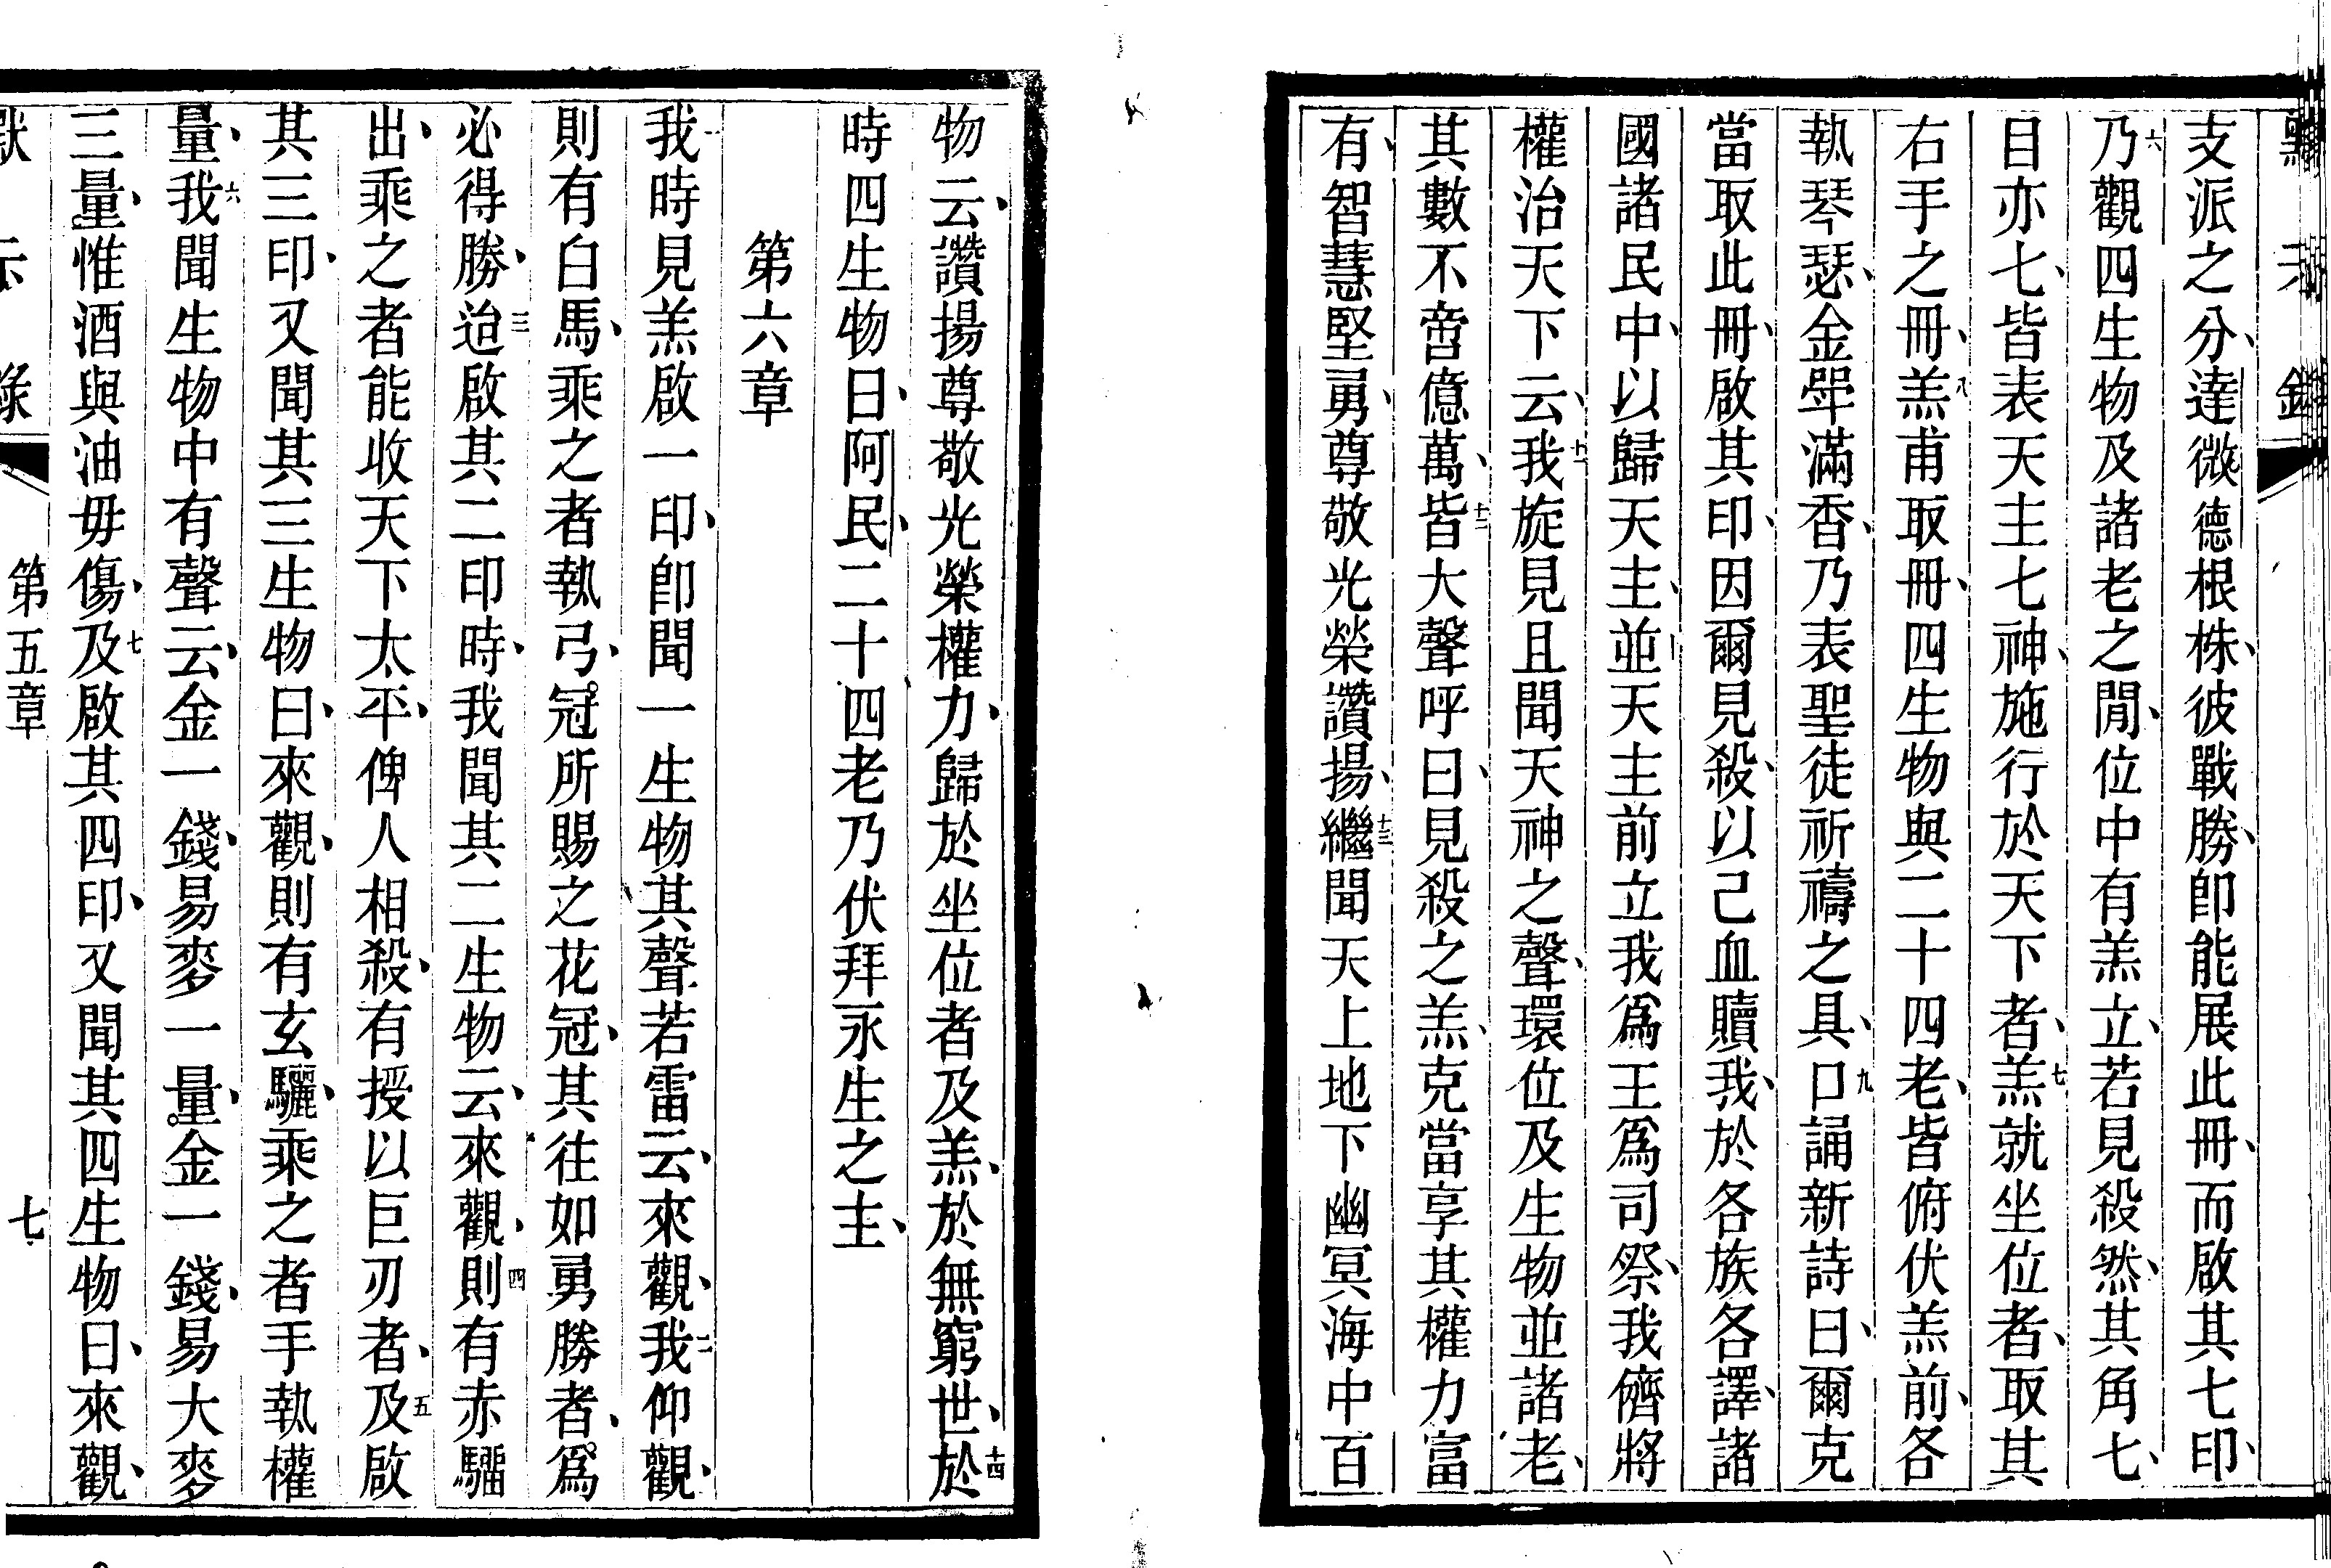 默示錄
支派之分、達微德根株、彼戰勝、卽能展此冊、而啟其七印、
六乃觀四生物及諸老之閒、位中有羔立、若見殺然、其角七、
目亦七、皆表天主七神、施行於天下者、七羔就坐位者、取其
右手之冊、八羔甫取冊、四生物與二十四老、皆俯伏羔前、各
執琴瑟、金斝滿香、乃表聖徒祈禱之具、九口誦新詩曰、爾克
當取此冊、啟其印、因爾見殺、以己血贖我、於各族各譯、諸
國諸民中、以歸天主、十並天主前立我為王為司祭、我儕將
權治天下云、十一我旋見且聞天神之聲、環位及生物並諸老、
其數不啻億萬、十二皆大聲呼曰、見殺之羔、克當享其權力富
有、智慧堅勇、尊敬光榮讚揚、十三繼聞天上地下幽冥海中百
物云、讚揚尊敬光榮權力、歸於坐位者及羔、於無窮世、十四於
時四生物曰、阿民、二十四老乃伏拜永生之主、
第六章
一我時見羔啟一印、卽聞一生物其聲若雷云、來觀、二我仰觀、
則有白馬、乘之者執弓。冠所賜之花冠、其往如勇勝者。為
必得勝、三迨啟其二印時、我聞其二生物云、來觀、四則有赤騮
出、乘之者能收天下太平、俾人相殺、有授以巨刃者、五及啟
其三印、又聞其三生物曰、來觀、則有玄驪、乘之者手執權
量、六我聞生物中有聲云、金一錢、易麥一量。金一錢、易大麥
三量。惟酒與油毋傷、七及啟其四印、又聞其四生物曰、來觀、
默示錄 第五章 七